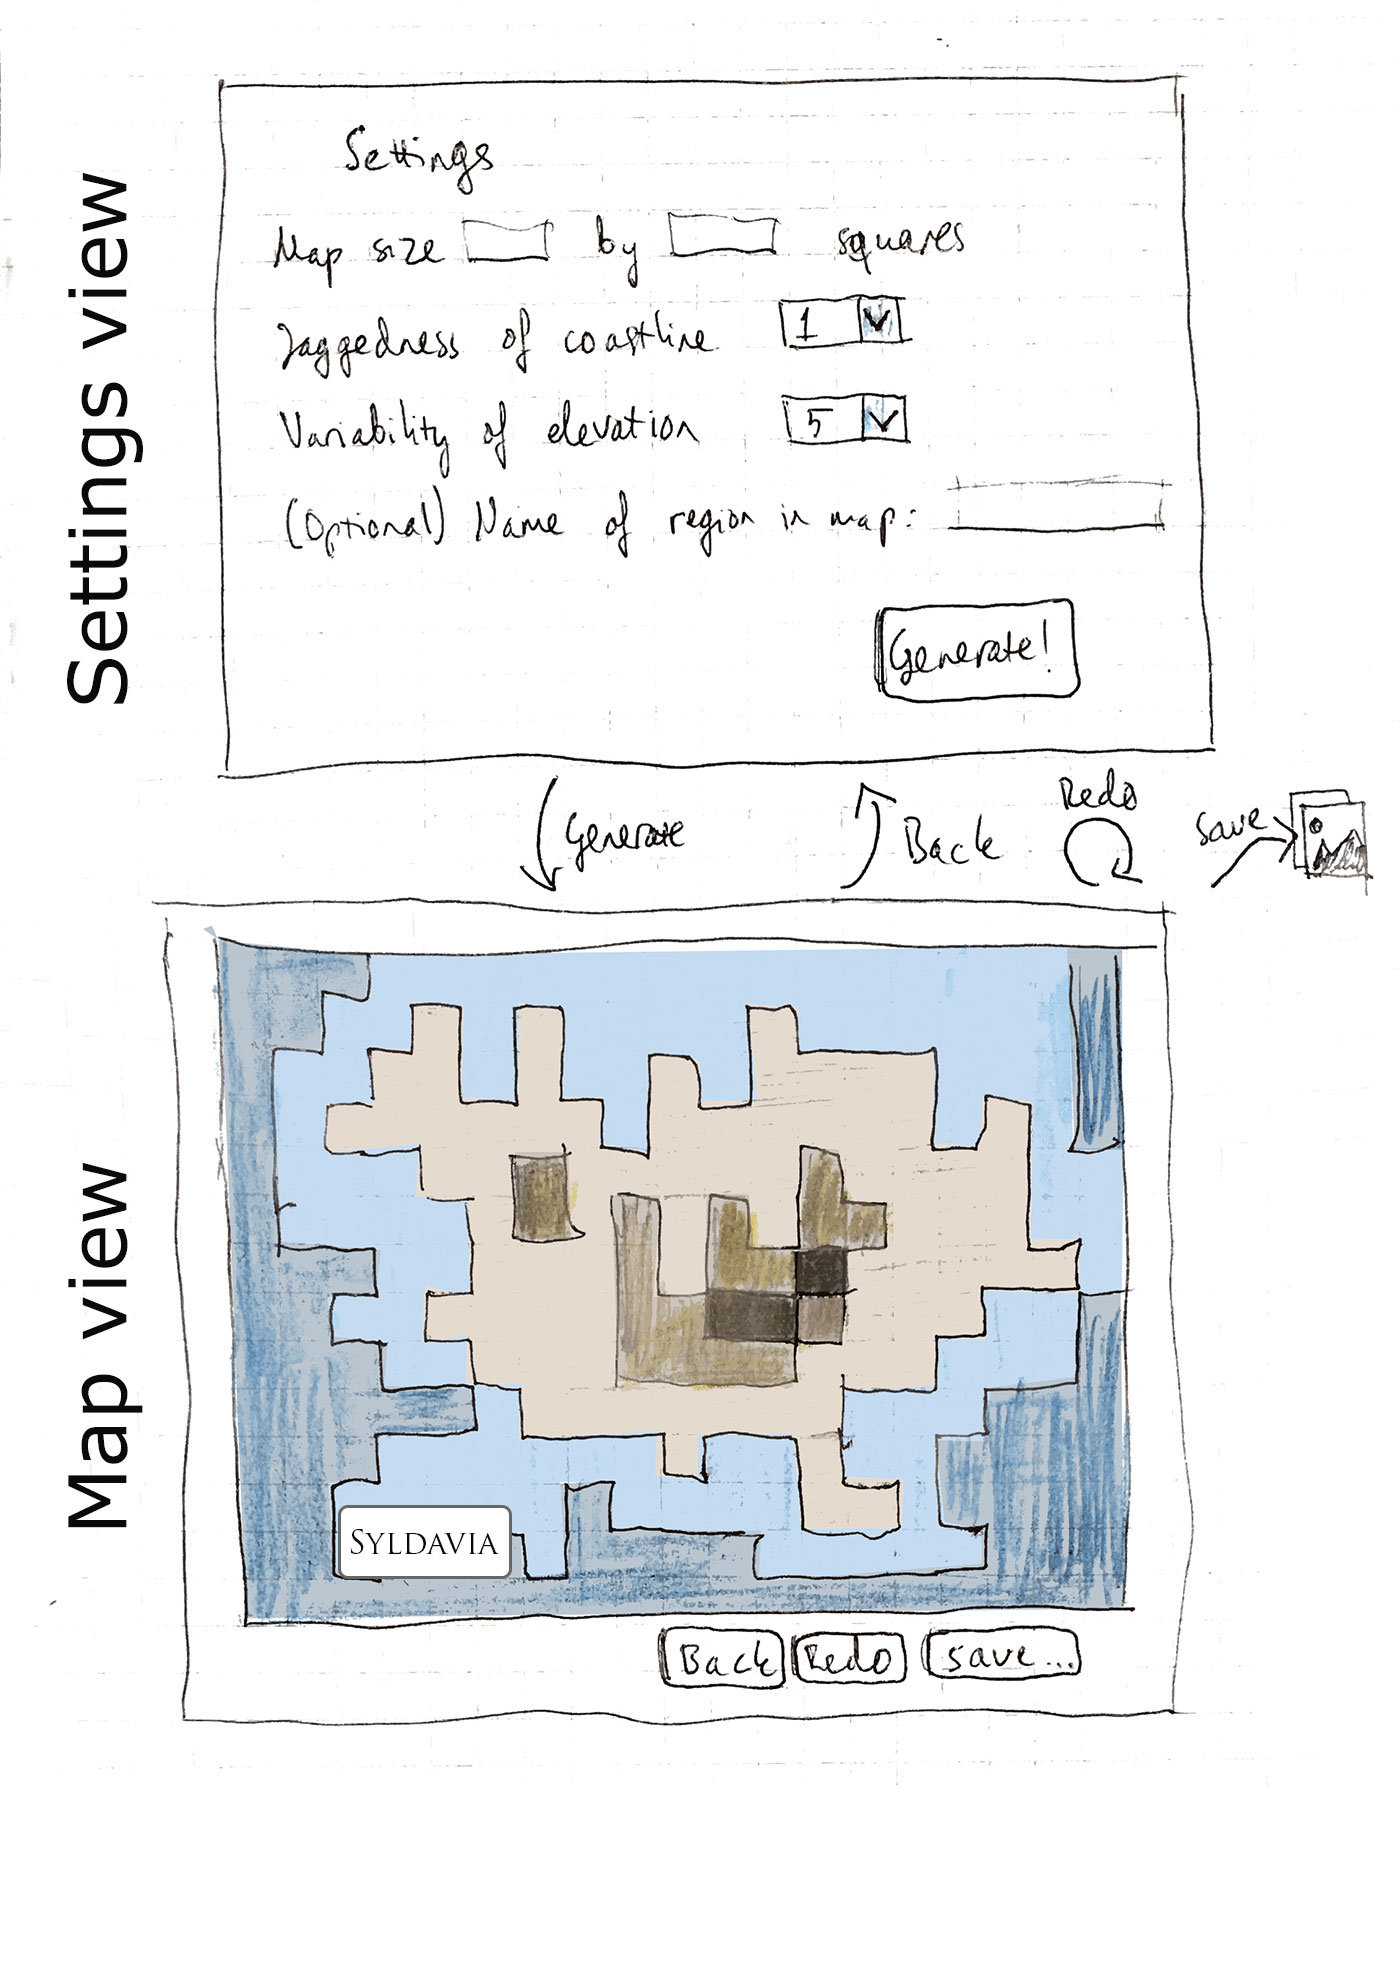 Settings view
Settings
Map size by squares
Jaggedness of coastline 1
Variability of elevation 5
(Optional) Name of region in map:
Generate!
Generate
Back
Redo
Save
Map view
SYLDAVIA
Back Redo Save...